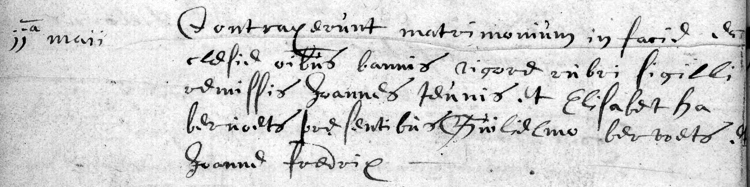 11a maii Contraxerunt matrimonium in facie ec
clesie oibus bannis rigore rubri sigilli
remissis Joannes Teunis et Elisabetha
bervoets presentibus Guilielmo bervoets et
Joanne fredrix